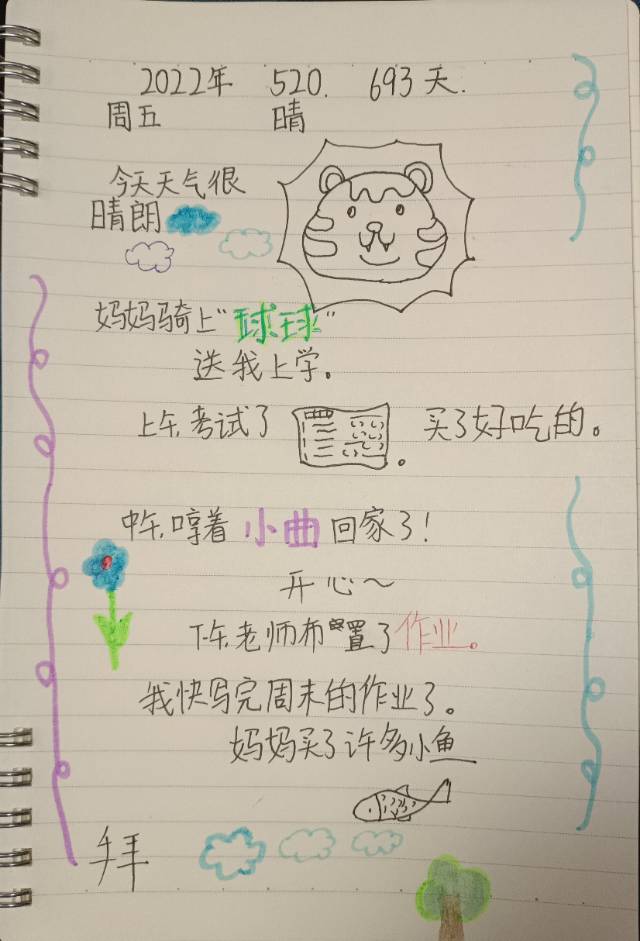 2022年 520. 693天.
周五 晴
今天天气很
晴朗
妈妈骑上"球球"
送我上学。
上午,考试了 。 买了好吃的。
中午,哼着小曲回家了!
开心～
下午,老师布置了作业。
我快写完周末的作业了。
妈妈买了许多小鱼
拜